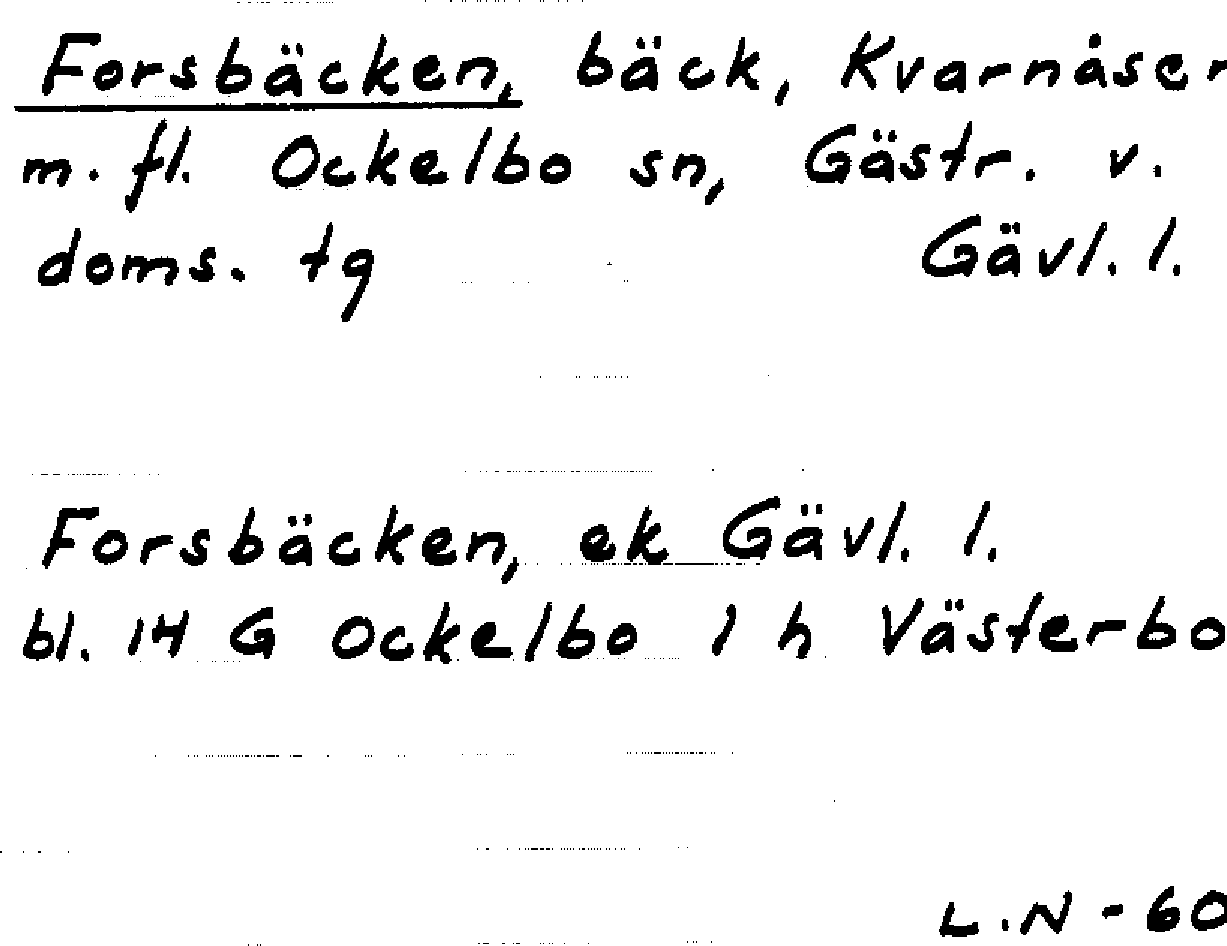 Forsbäcken, bäck, Kvarnåser
m. fl. Ockelbo sn, Gästr. v.
doms. tg Gävl. l.
Forsbäcken, ek Gävl. l.
bl. 14 G Ockelbo 1 h Västerbo
L.N - 60